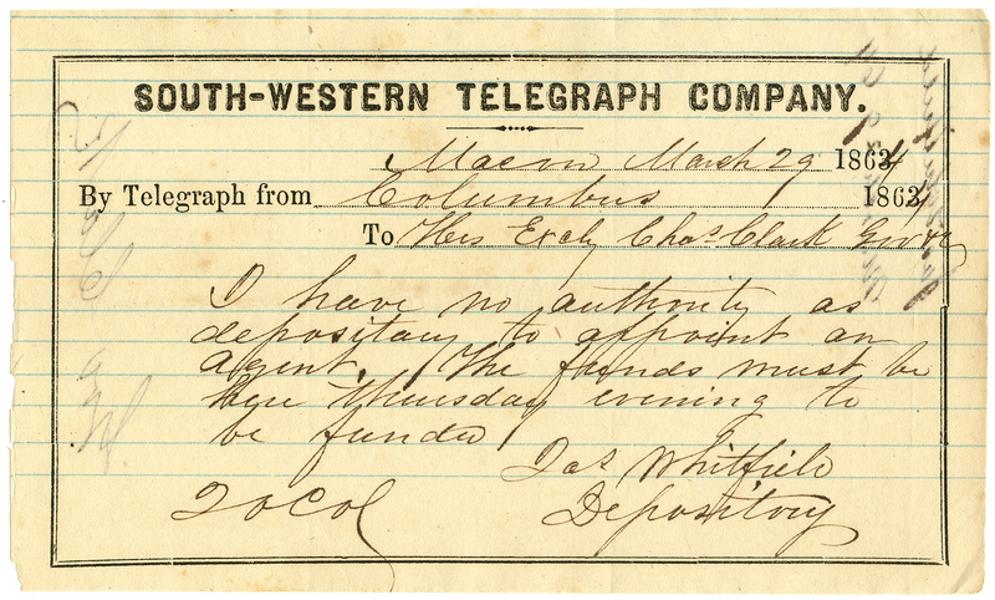 SOUTH-WESTERN TELEGRAPH COMPANY.
Macon March 29 1864
By Telegraph from Columbus 1864
To His Excly Chas Clark Gov &c
I have no authority as
depositary to appoint an
agent. The funds must be
here thursday evening to
be funded
Jas Whitfield
Depository